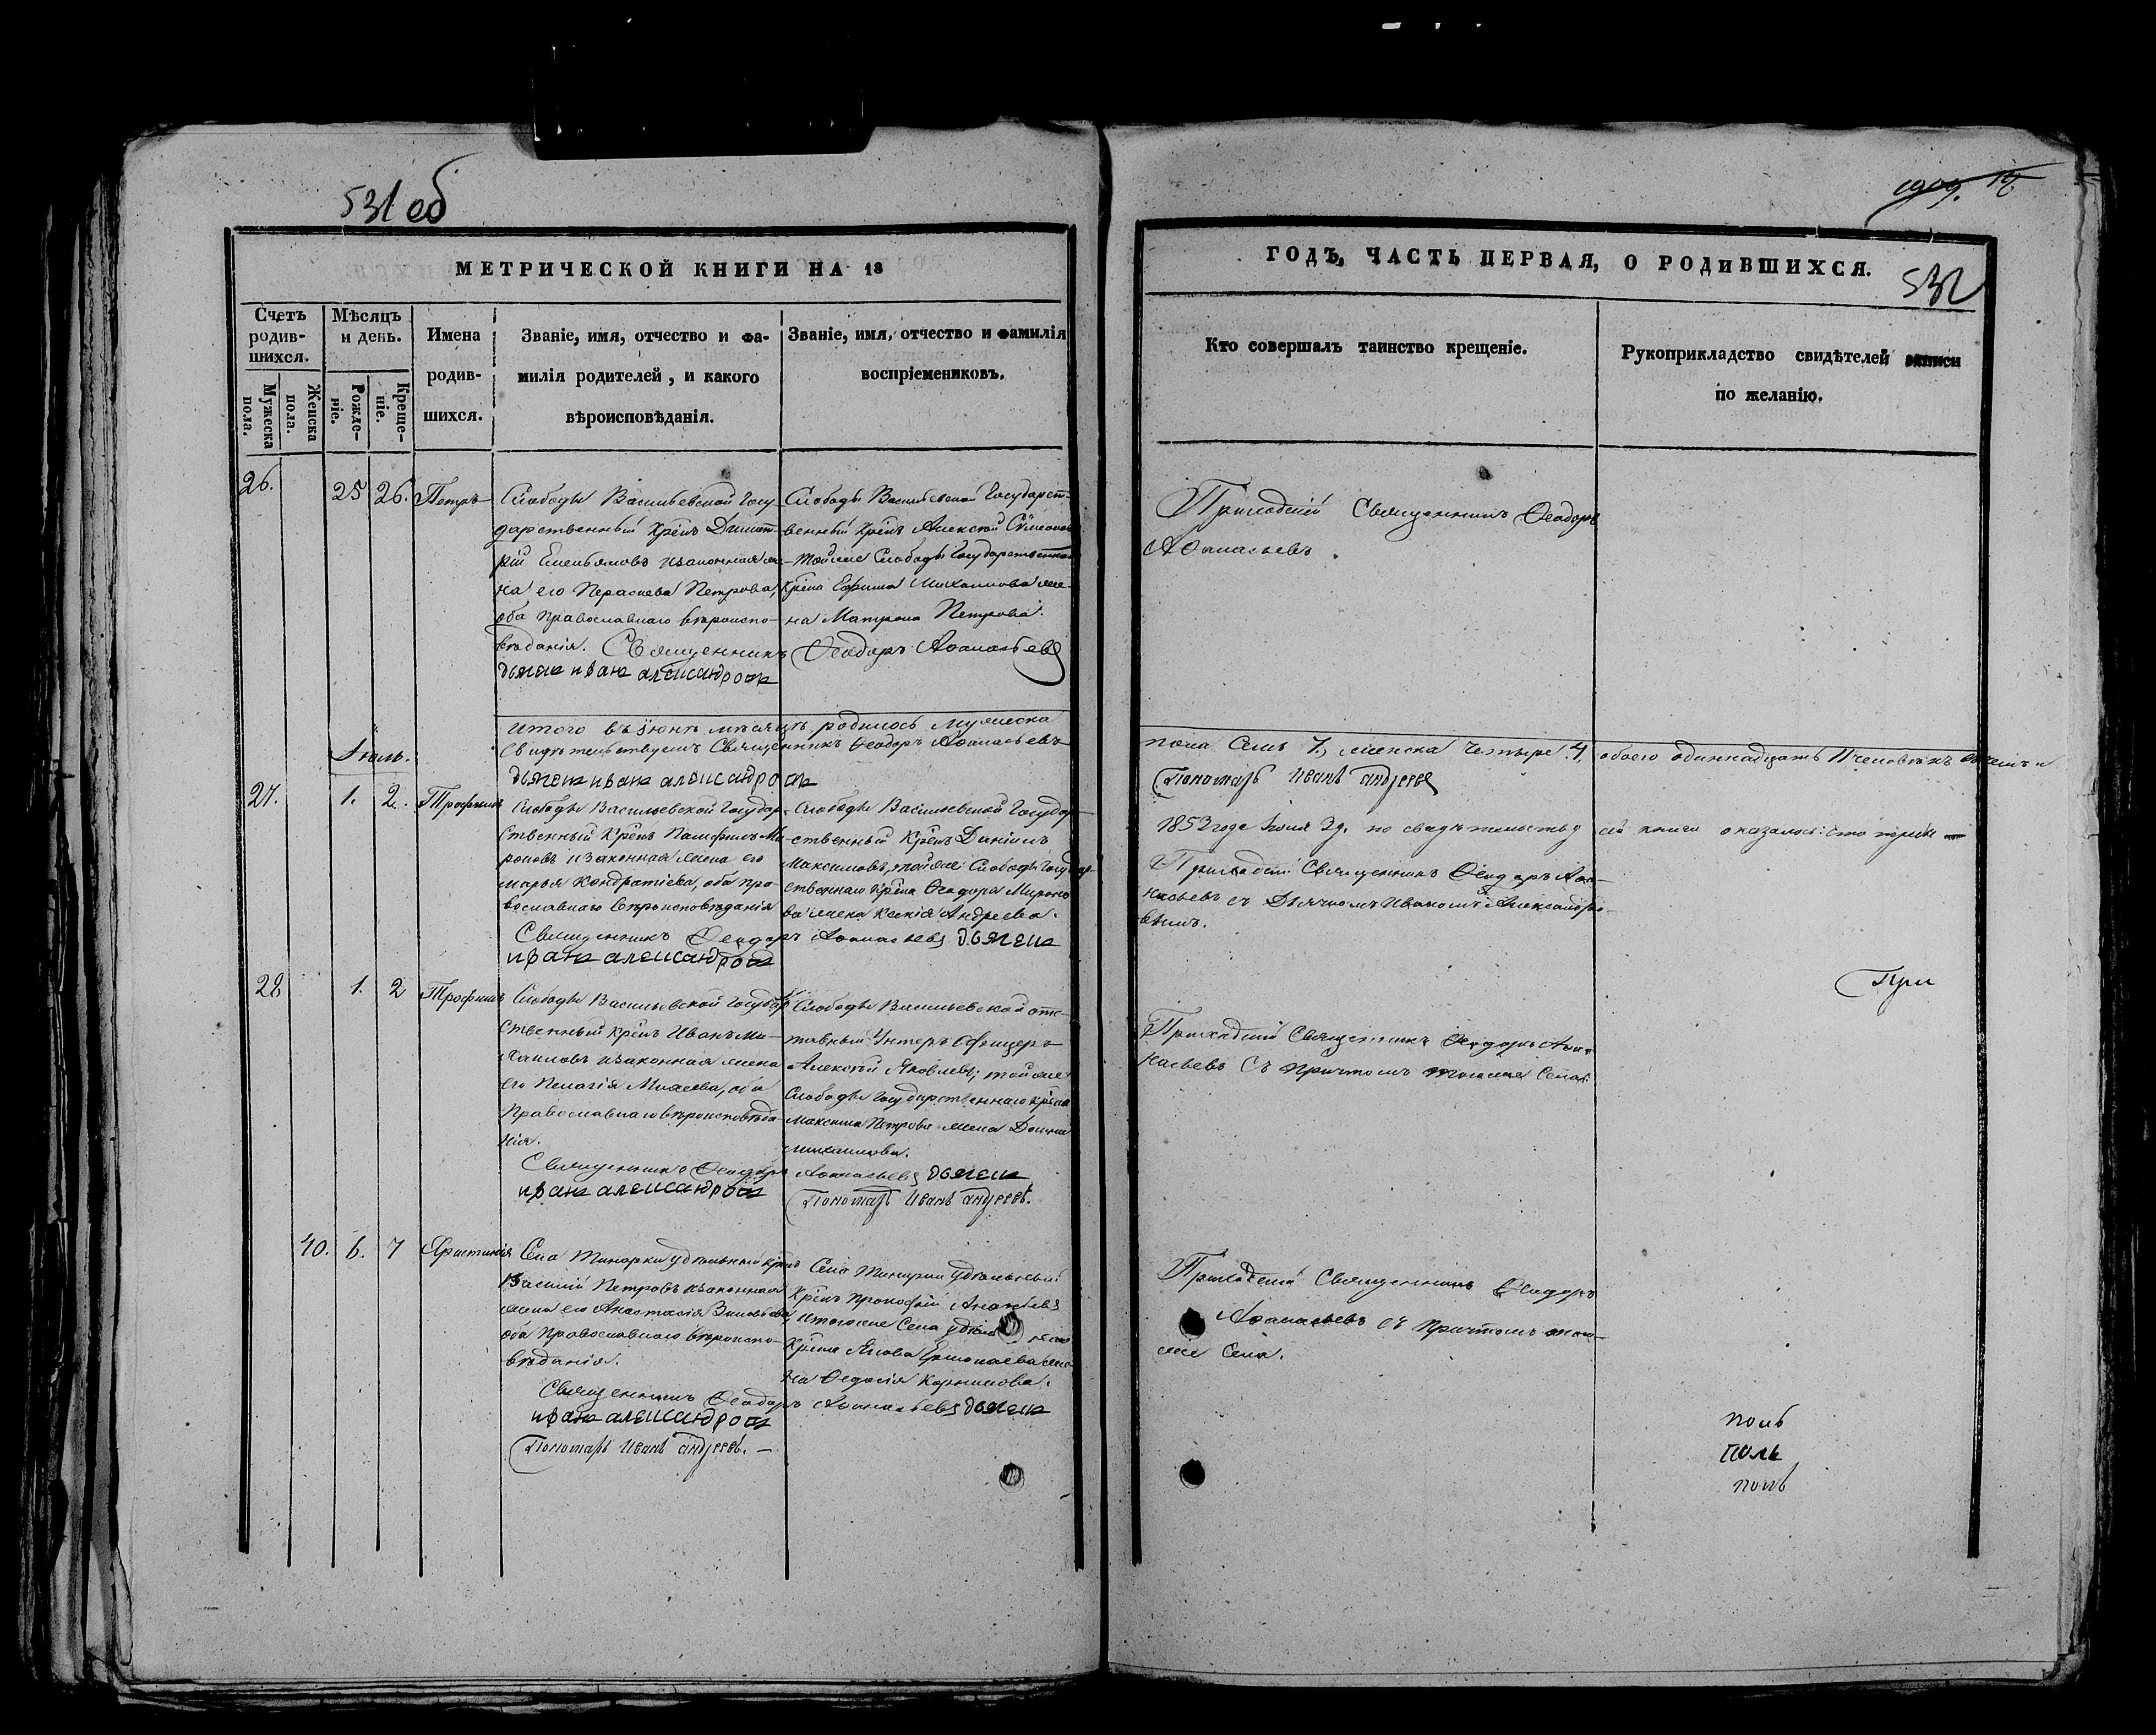 531 об
МЕТРИЧЕСКОЙ КНИГИ НА 18
Счетъ родив-шихся.
Мужеска пола.
Женска пола.
Мѣсяцъ и день.
Рожде-ніе.
Креще-ніе.
Имена
родив-
шихся.
Званіе, имя, отчество и фа-
милія родителей, и какого
вѣроисповѣданія.
Званіе, имя, отчество и фамилія
воспріемениковъ.
26. 25 26. Петръ
Слободы Васильевской Госу-
дарственный Крѣнъ Димит-
рій Емельяновъ и законная же-
на его Параскева Петрова,
оба Православнаго вѣроиспо-
вѣданія. Священникъ Ѳеодоръ Аѳанасьевъ
дьячекъ иванъ александровъ
Слободы Васильевской Государст-
венный Крѣнъ Алексей Сѵмеоновъ
Тойже Слободы Государственнаго
Крѣна Ефима Михайлова же-
на Матрона Петрова.
итого въ Іюнѣ мѣсяцѣ родилось мужеска
Свидѣтельствуемъ Священникъ Ѳеодоръ Аѳанасьевъ
дьячекъ иванъ александровъ
Іюль.
27. 1. 2. Трофимъ
Слободы Васильевской Государ-
ственный Крѣнъ Памфилъ Ми-
роновъ и законная жена его
Марья Кондратіева, оба пра-
вославнаго вѣроисповѣданія
Священникъ Ѳеодоръ Аѳанасьевъ дьячекъ
иванъ александровъ
Слободы Васильевской Государ-
ственный Крѣнъ Даніилъ
Максимовъ, тойже Слободы Государ-
ственнаго Крѣна Ѳеодора Миро­но
ва жена Ксенія Андреева.
28 1. 2 Трофимъ
Слободы Васильевской Государ-
ственный Крѣнъ Иванъ Ми-
хайловъ и законная жена
его Пелагія Моисеева, оба
Православнаго вѣроисповѣда
нія.
Священникъ Ѳеодоръ Аѳанасьевъ дьячекъ
иванъ александровъ
Слободы Васильевской отс-
тавный Унтеръ Офицеръ
Алексѣй Яковлевъ; тойже
Слободы Государственнаго Крѣна
Максима Петрова жена Домна
михайлова.
Пономарь Иванъ андреевъ.
40. 6. 7 Христинія
Села Тинарки удѣльный Крѣнъ
Василій Петровъ и законная
жена его Анастасія Зиновьева
оба Православнаго вѣроиспо-
вѣданія.
Священникъ Ѳеодоръ Аѳанасьевъ дьячекъ
иванъ александровъ
Пономарь Иванъ андреевъ.
Села Тинарки удѣльный
Крѣнъ Прокофій Ананьевъ
и тогоже Села
Крѣна Якова Ермолаева же-
на Ѳедосія Корнилова.
ГОДЪ, ЧАСТЬ ПЕРВАЯ, О РОДИВШИХСЯ.
532
Кто совершалъ таинство крещеніе.
Рукоприкладство свидѣтелей записи
по желанію.
Приходскій Священникъ Ѳеодоръ
Аѳанасьевъ.
пола Семь 7, женска четыре 4, обоего одиннадцать 11 человѣкъ
Пономарь Иванъ андреевъ
1853 года Іюля 3 д. по свидѣтельству сей книги оказалось: что
Приходскій Священникъ Ѳеодоръ Аѳа-
насьевъ съ Дьячкомъ Иваномъ Александро-
вымъ.
При
Приходскій Священникъ Ѳеодоръ Аѳа-
насьевъ Съ Причтомъ тогоже Села.
Приходскій Священникъ Ѳеодоръ
Аѳанасьевъ съ Причтомъ того-
же Села.